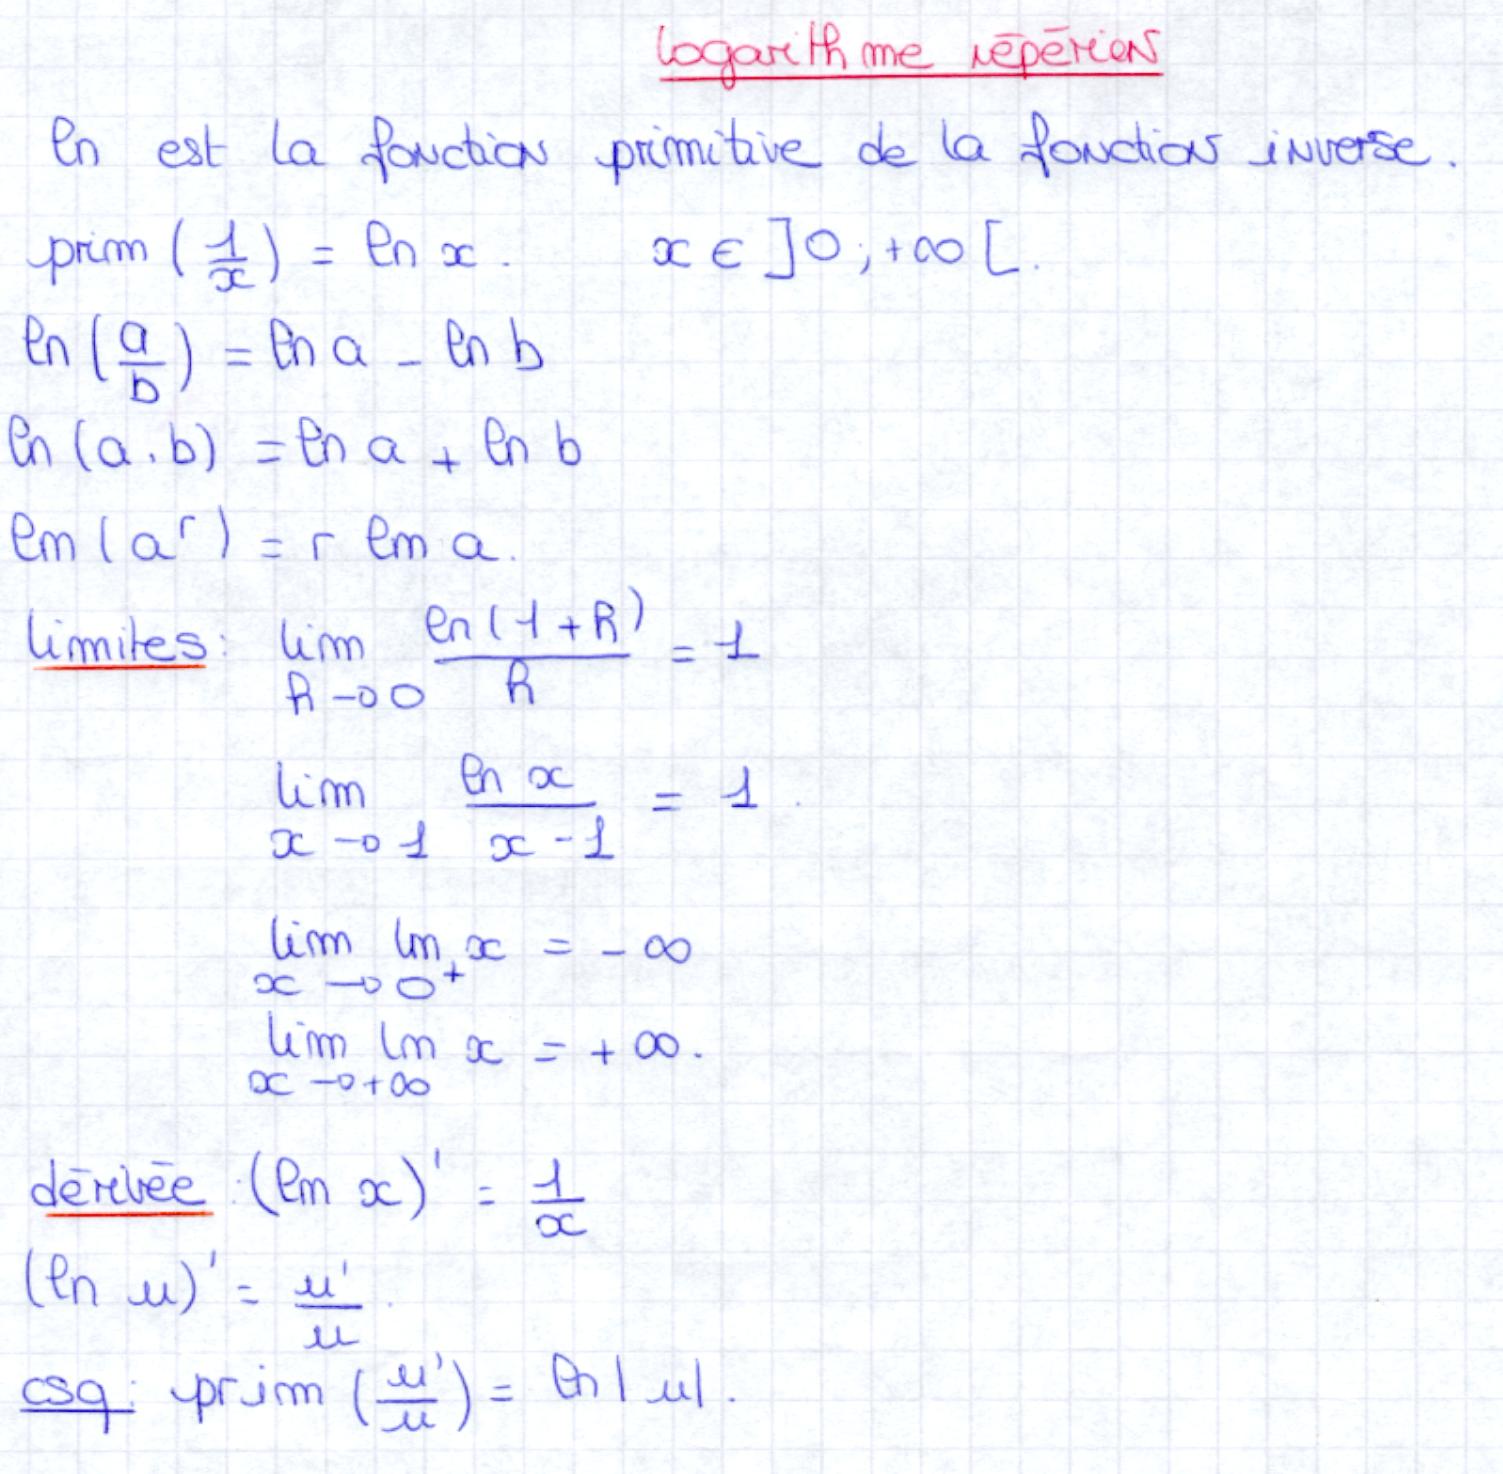 logarithme népérien
ln est la fonction primitive de la fonction inverse.
prim (1/x) = ln x. x ∈ ]0 ; +∞ [.
ln (a/b) = ln a - ln b
ln (a.b) = ln a + ln b
ln (a^r) = r ln a.
limites : lim_{h→0} ln(1+h)/h = 1
lim_{x→1} ln x/(x-1) = 1.
lim_{x→0⁺} ln x = -∞
lim_{x→+∞} ln x = +∞.
dérivée : (ln x)' = 1/x
(ln u)' = u'/u.
csq : prim (u'/u) = ln |u|.